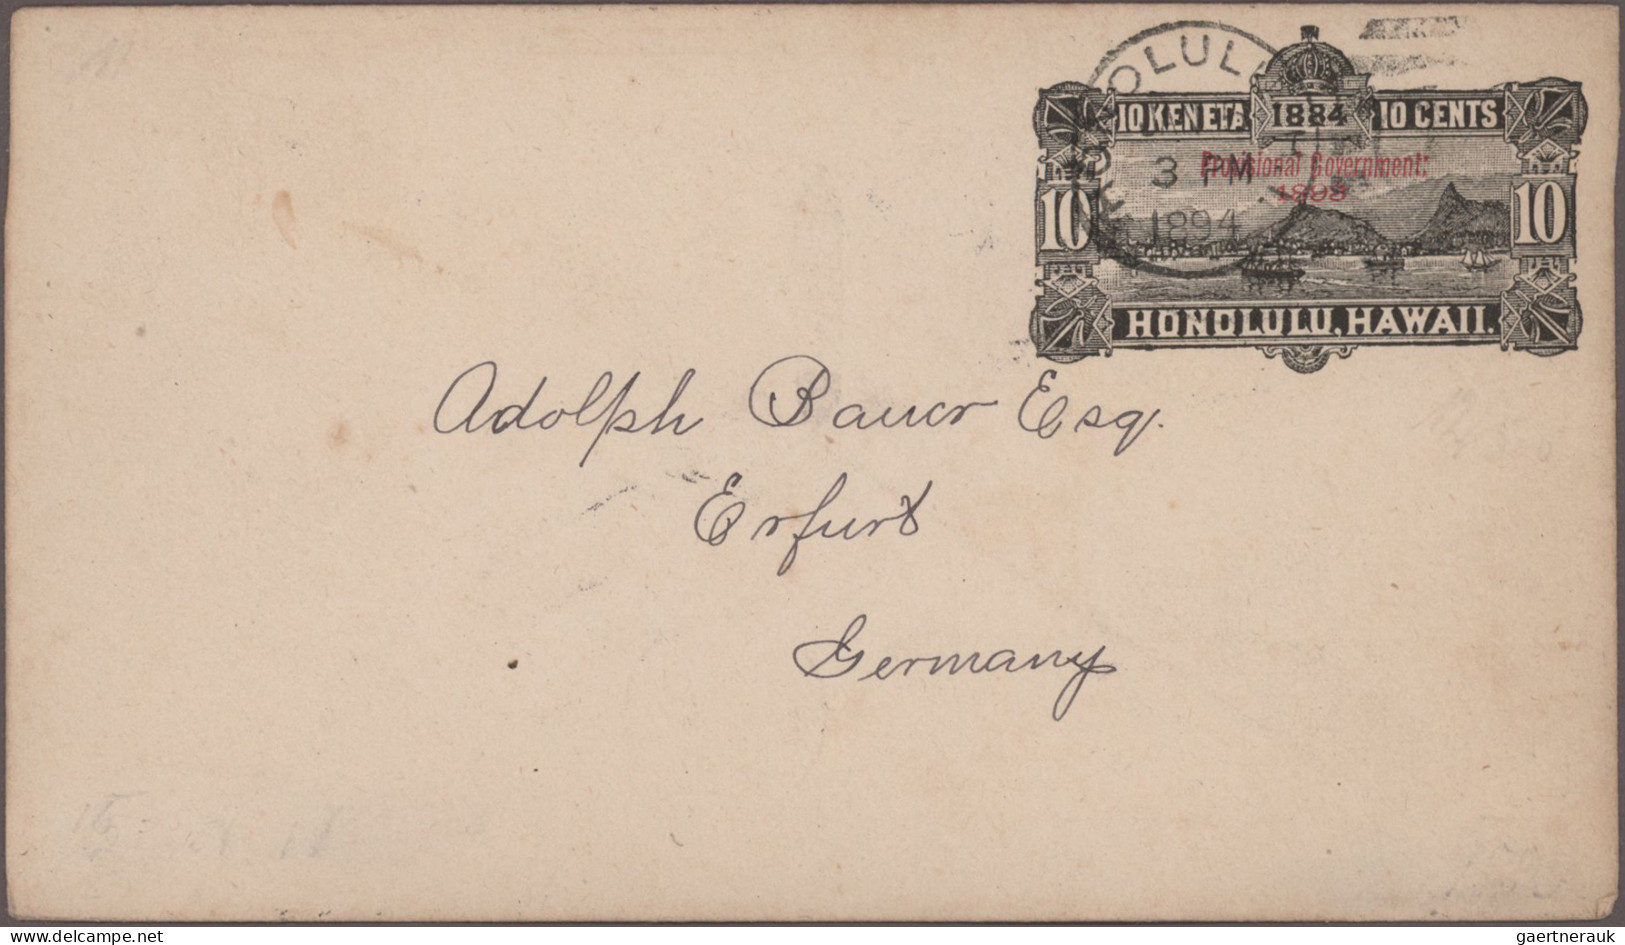 HONOLULU
10 KENETA 1884 10 CENTS
3 PM
Provisional Government:
1893
1894
10 10
HONOLULU, HAWAII.
Adolph Bauer Esq.
Erfurt
Germany
www.delcampe.net
gaertnerauk